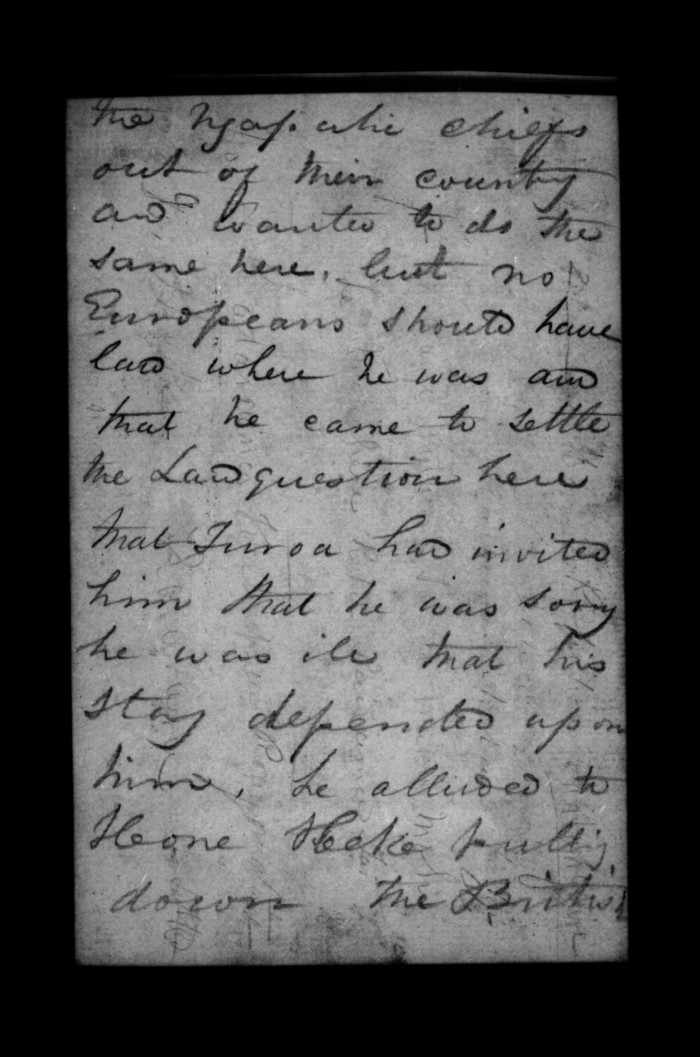 the Ngapuhi chiefs
out of their country
and wanted to do the
same here, but no
Europeans should have
land where he was and
that he came to settle
the Land question here
that Turoa had invited
him that he was sorry
he was ill that his
stay depended upon
him, he alluded to
Hone Heke pulling
down the British